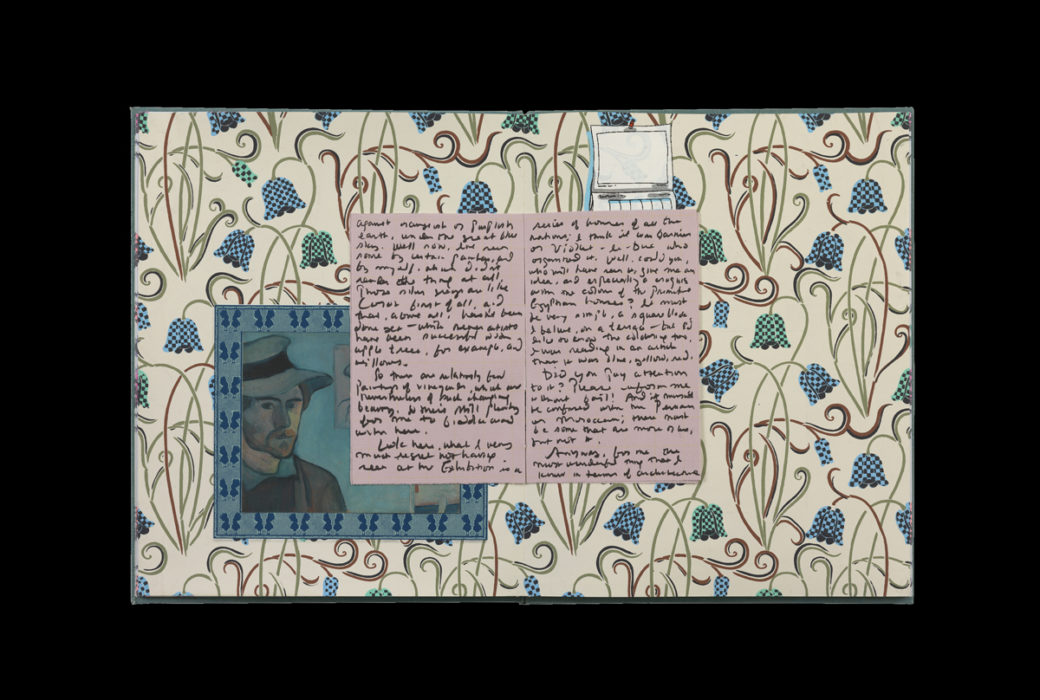 against orangeish or purplish
earth, under the great blue
sky. Well now, I've seen
some by certain painters, and
by myself, which didn't
render the thing at all.
Those silver greys are like
Corot first of all, and
that, above all, hasn't been
done yet – while several artists
have been successful with
apple trees, for example, and
willows.
So there are relatively few
paintings of vineyards, which are
nevertheless of such changing
beauty. So there's still plenty
for me to fiddle around
with here.
Look here, what I very
much regret not having
seen at the Exhibition is a
series of houses of all the
nations; I think it was Garnier
or Viollet-le-Duc who
organised it. Well, could you,
who will have seen it, give me an
idea, and especially a croquis
with the colour of the primitive
Egyptian house? It must
be very simple, a square block
I believe, on a terrace – but I'd
like to know the colouring too.
I was reading in an article
that it was blue, yellow, red.
Did you pay attention
to it? Please inform me
without fail! And it mustn't
be confused with the Persian
or Moroccan; there must
be some that are more or less,
but not it.
Anyway, for me the
most wonderful thing that I
know in terms of architecture